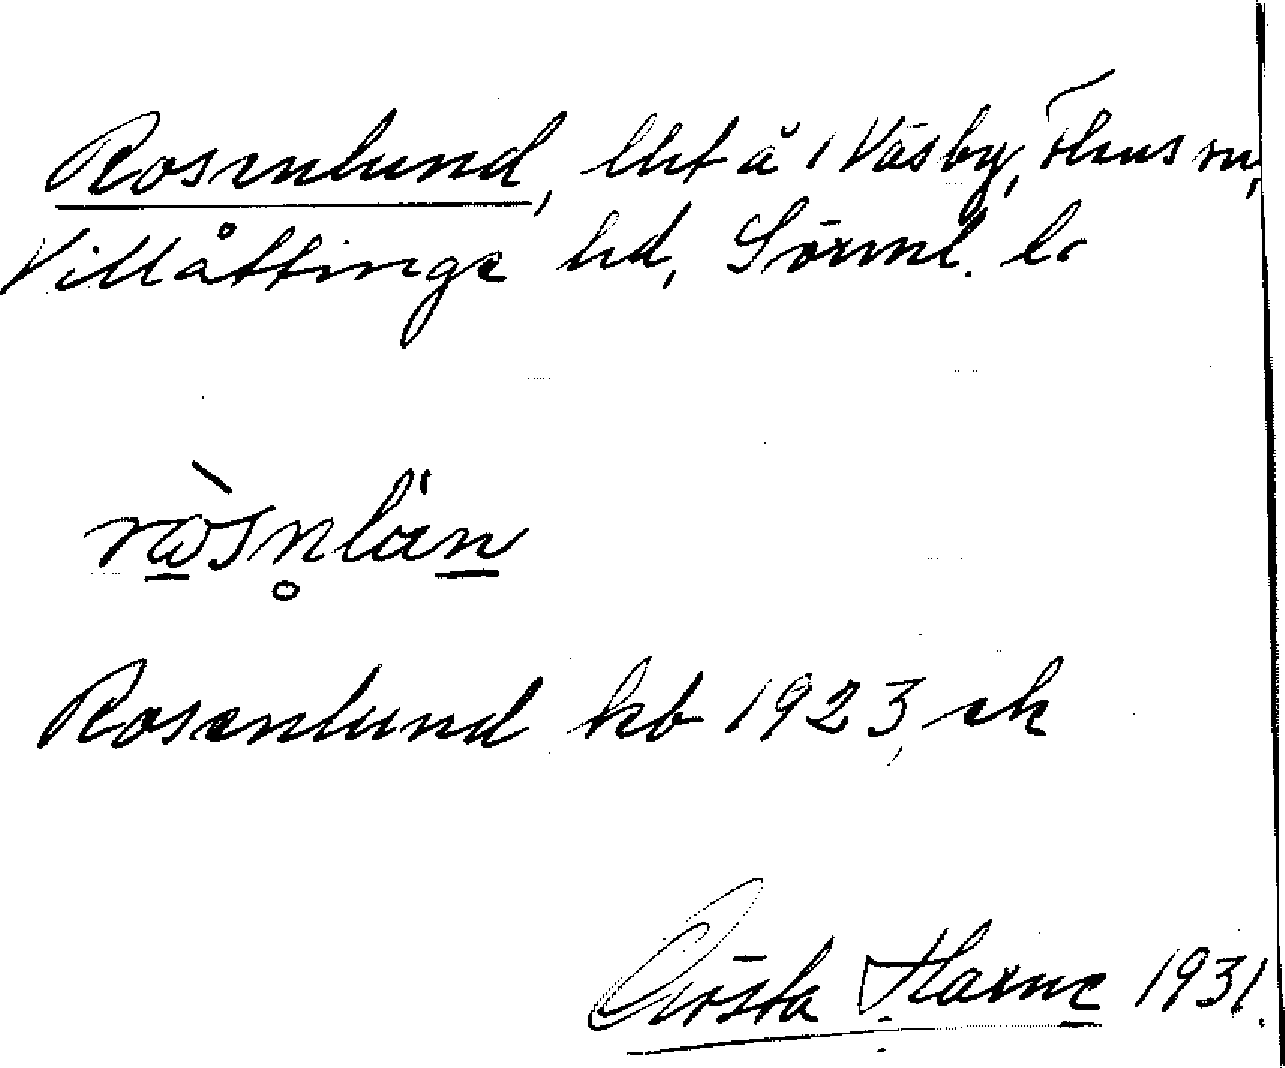 Rosenlund, lht å 1 Väsby, Flens sn,
Villåttinge hd, Sörml. l.
ròsn̥län
Rosenlund kb 1923, ek
Gösta Harne 1931.